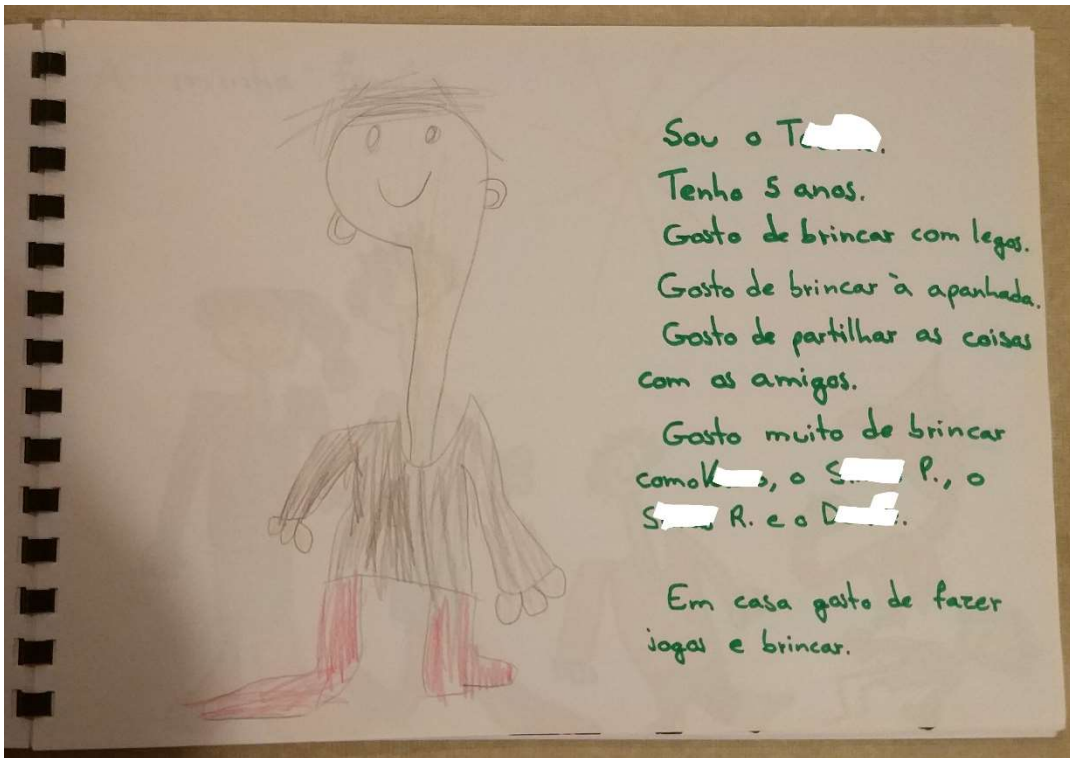 Sou o T
Tenho 5 anos.
Gosto de brincar com legos.
Gosto de brincar à apanhada.
Gosto de partilhar as coisas
com os amigos.
Gosto muito de brincar
com o K, o S P., o
S R. e o D.
Em casa gosto de fazer
jogos e brincar.